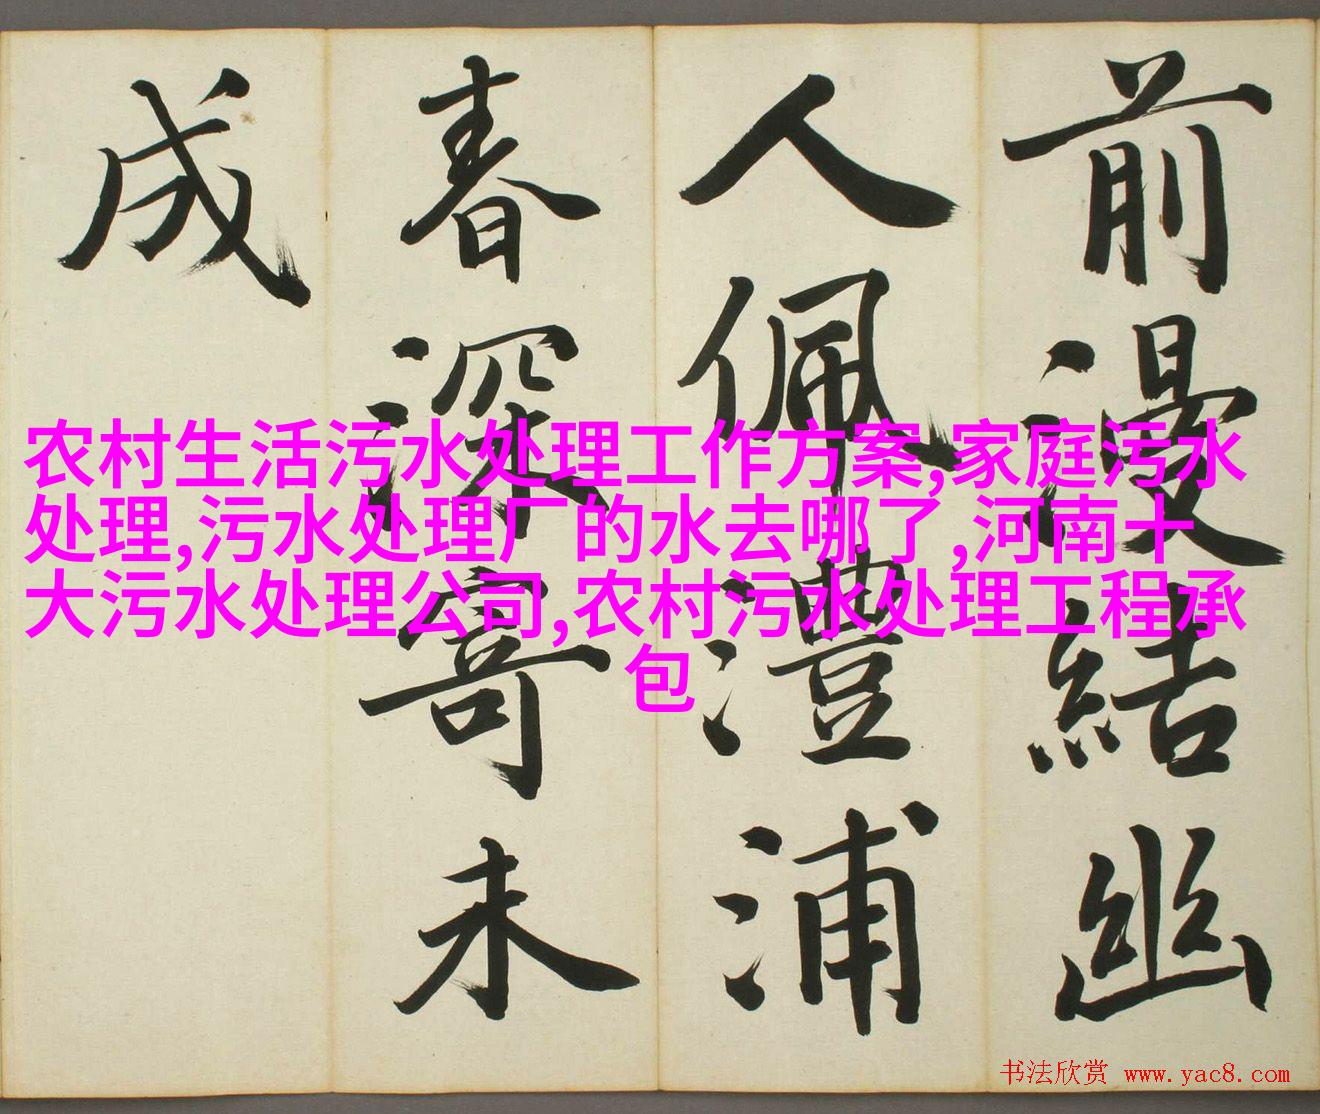 前漫結幽
人佩澧浦
春深寄未
成
农村生活污水处理工作方案,家庭污水
处理,污水处理厂的水去哪了,河南十
大污水处理公司,农村污水处理工程承
包
书法欣赏 www.yac8.com